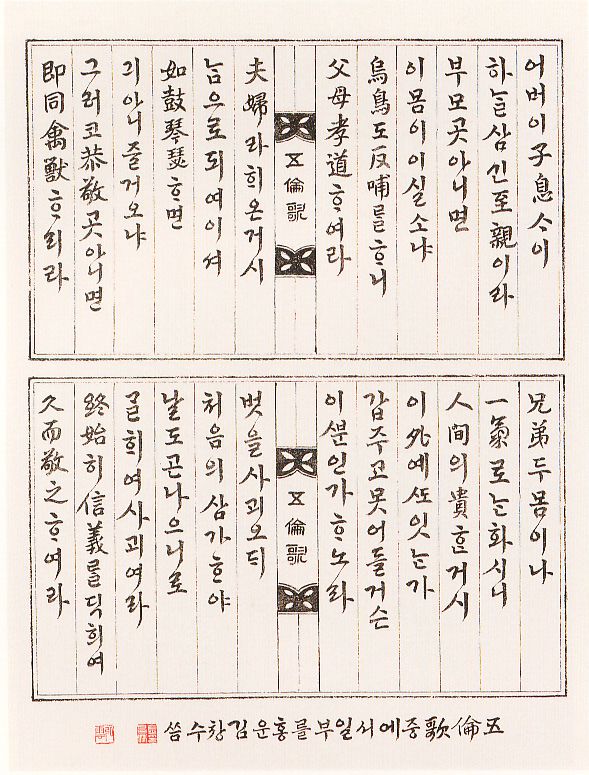 어버이子息ᄉᆞ이
하ᄂᆞᆯ삼긴至親이라
부모곳아니면
이몸이이실소냐
烏鳥도反哺를ᄒᆞ니
父母孝道ᄒᆞ여라
五倫歌
夫婦라ᄒᆡ온거시
ᄂᆞᆷ으로되여이셔
如鼓琴瑟ᄒᆞ면
긔아니즐거오냐
그러코恭敬곳아니면
即同禽獸ᄒᆞ리라
兄弟두몸이나
一氣로ᄂᆞᆫ화시니
人間의貴ᄒᆞᆫ거시
이外예ᄯᅩ잇ᄂᆞᆫ가
갑주고못어들거슨
이ᄲᅮᆫ인가ᄒᆞ노라
五倫歌
벗을사괴오ᄃᆡ
처음의삼가ᄒᆞ야
날도곤나으니로
ᄀᆞᆯᄒᆡ여사괴여라
終始히信義를딕희여
久而敬之ᄒᆞ여라
五倫歌중에서일부를홍운김창수씀